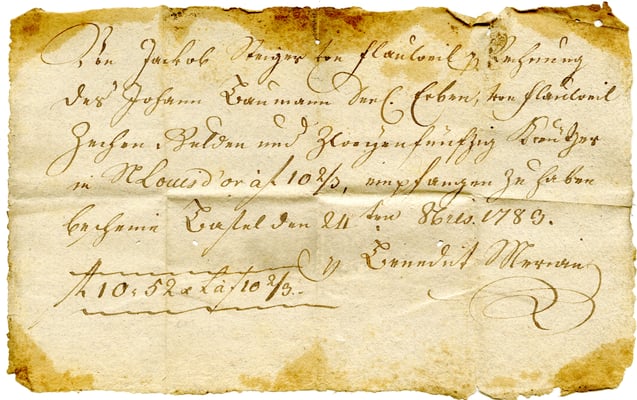 Von Jackob Steiger von Flauweil p Rechnung
des Johann Baumann Seel. Erben, von Flauweil
Zechen Gulden und Zweyenfünfzig Kreützer
in Louisd'or à f 10 2/3, empfangen zu haben
bescheine Basel den 24ten 8bris. 1783.
p Benedict Merian
f 10 : 52 x L à f 10 2/3.